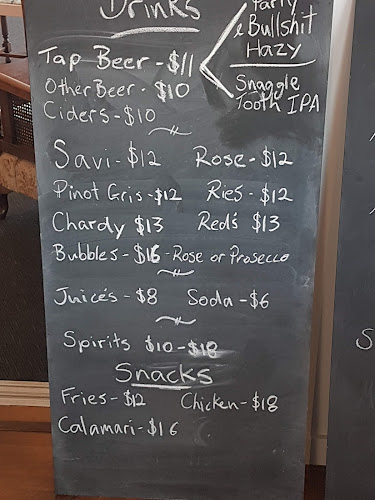 Drinks
Party
& Bullshit
Hazy
Tap Beer - $11
Snaggle
Tooth IPA
Other Beer - $10
Ciders - $10
Savi - $12 Rose - $12
Pinot Gris - $12 Ries - $12
Chardy $13 Red's $13
Bubbles - $16 - Rose or Prosecco
Juice's - $8 Soda - $6
Spirits $10 - $18
Snacks
Fries - $12 Chicken - $18
Calamari - $16
S